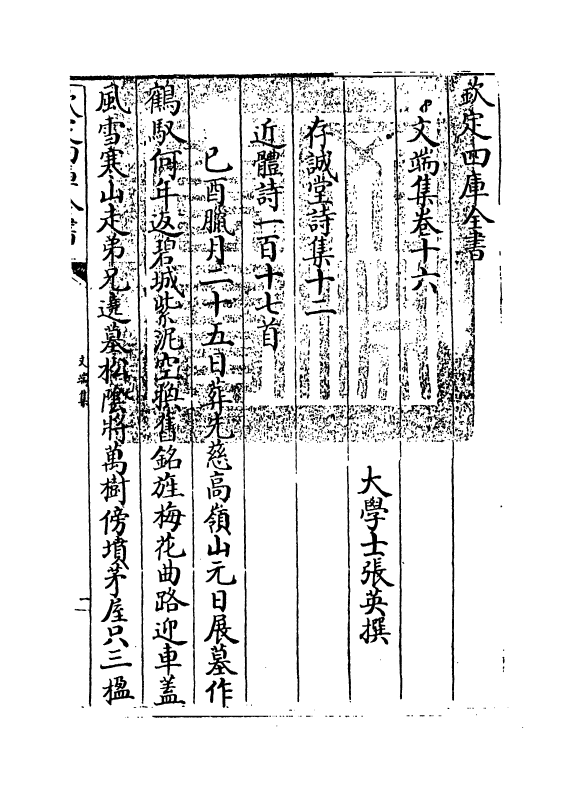 欽定四庫全書
文端集卷十六
大學士張英撰
存誠堂詩集十二
近體詩一百十七首
己酉臘月二十五日葬先慈高嶺山元日展墓作
鶴馭何年返碧城紫泥空舊銘旌梅花曲路迎車蓋
風雪寒山走弟兄遶墓松陰將萬樹傍墳茅屋只三楹
欽定四庫全書
文端集
一